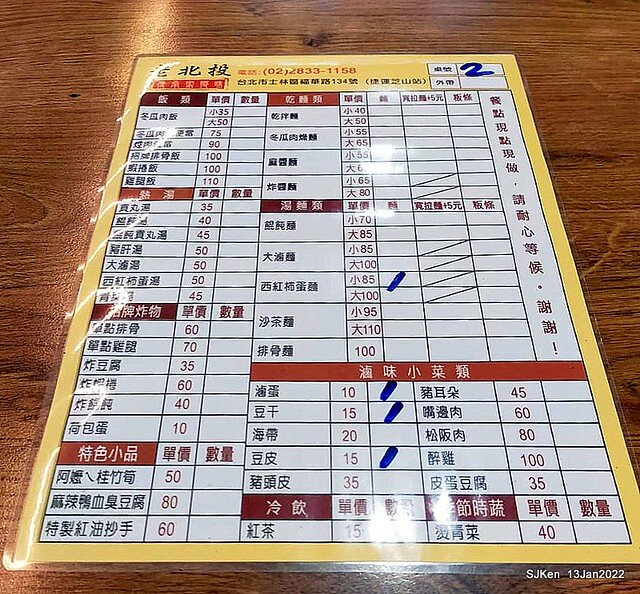 老北投
電話:(02)2833-1158
台北市士林區福華路134號 (捷運芝山站)
桌號 2
外帶
飯類 單價 數量
冬瓜肉飯 小35
大50
75
90
招牌排骨飯 100
蝦捲飯 100
雞腿飯 110
熱湯 單價 數量
貢丸湯 35
餛飩湯 40
餛飩貢丸湯 45
豬肝湯 50
大滷湯 50
西紅柿蛋湯 50
45
招牌炸物 單價 數量
單點排骨 60
單點雞腿 70
炸豆腐 35
炸蝦捲 60
炸餛飩 40
荷包蛋 10
特色小品 單價 數量
阿嬤ㄟ桂竹筍 50
麻辣鴨血臭豆腐 80
特製紅油抄手 60
乾麵類 單價 麵 寬拉麵+5元 板條
乾拌麵 小40
大50
冬瓜肉燥麵 小55
大65
麻醬麵 小55
炸醬麵 小65
大80
湯麵類 單價 麵 寬拉麵+5元 板條
餛飩麵 小70
大85
大滷麵 小85
大100
西紅柿蛋麵 小85
大100
沙茶麵 小95
大110
排骨麵 100
滷味小菜類
滷蛋 10 豬耳朵 45
豆干 15 嘴邊肉 60
海帶 20 松阪肉 80
豆皮 15 醉雞 100
豬頭皮 35 皮蛋豆腐 35
冷飲 單價 數量 季節時蔬 單價 數量
紅茶 15 燙青菜 40
餐點現點現做,請耐心等候。謝謝!
SJKen 13Jan2022